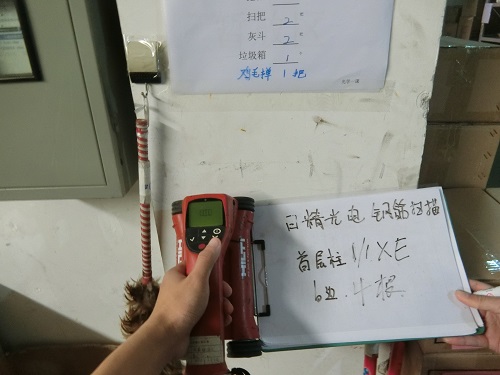 扫把 2
灰斗 2
垃圾箱 1
鸡毛掸 1把
HILTI
HILTI
日精光电 钢筋扫描
首层柱 1/1XE
b边. 4根